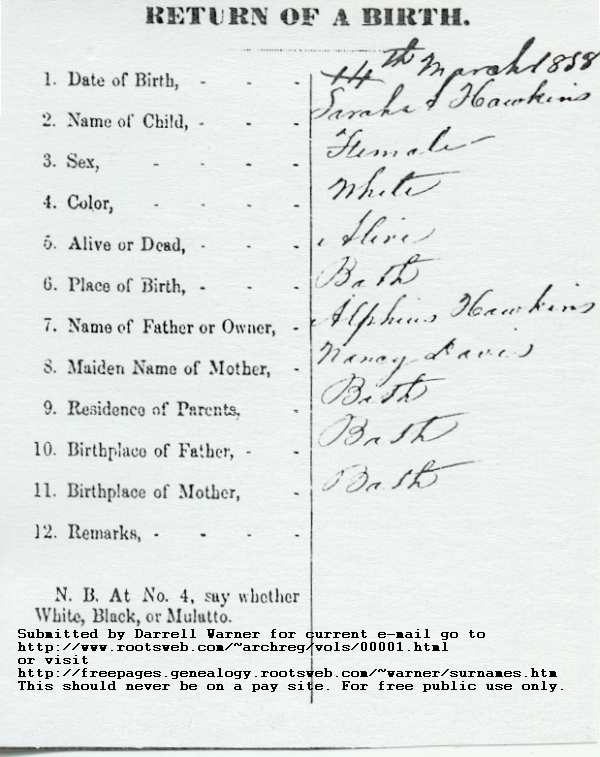 RETURN OF A BIRTH.
1. Date of Birth, - - - 14th March 1858
2. Name of Child, - - - Sarah Hawkins
3. Sex, - - - - Female
4. Color, - - - - White
5. Alive or Dead, - - - Alive
6. Place of Birth, - - - Bath
7. Name of Father or Owner, - Alphius Hawkins
8. Maiden Name of Mother, - Nancy Davis
9. Residence of Parents, - Bath
10. Birthplace of Father, - - Bath
11. Birthplace of Mother, - Bath
12. Remarks, - - - -
N. B. At No. 4, say whether
White, Black, or Mulatto.
Submitted by Darrell Warner for current e-mail go to
http://www.rootsweb.com/~archreg/vols/00001.html
or visit
http://freepages.genealogy.rootsweb.com/~warner/surnames.htm
This should never be on a pay site. For free public use only.